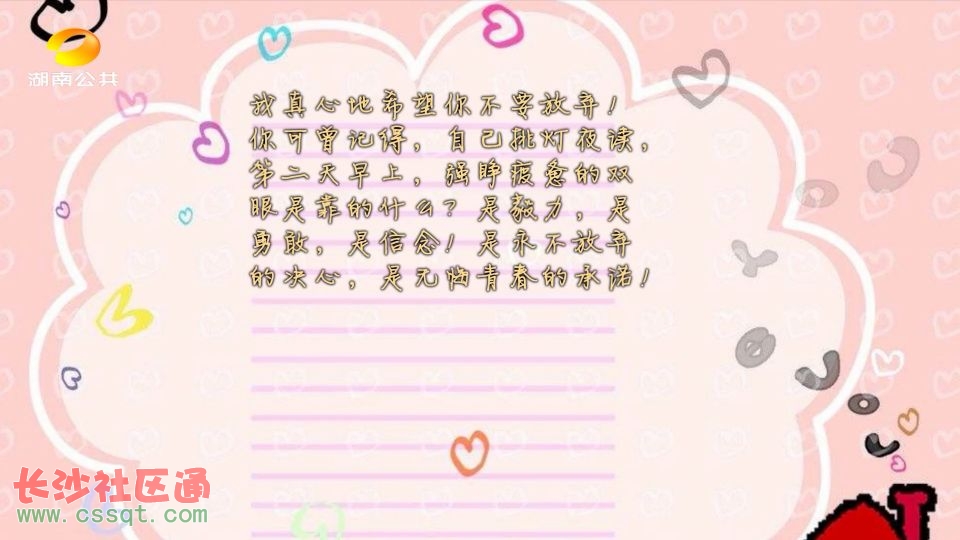 湖南公共
我真心地希望你不要放弃！
你可曾记得，自己挑灯夜读，
第二天早上，强睁疲惫的双
眼是靠的什么？是毅力，是
勇敢，是信念！是永不放弃
的决心，是无悔青春的承诺！
长沙社区通
www.cssqt.com